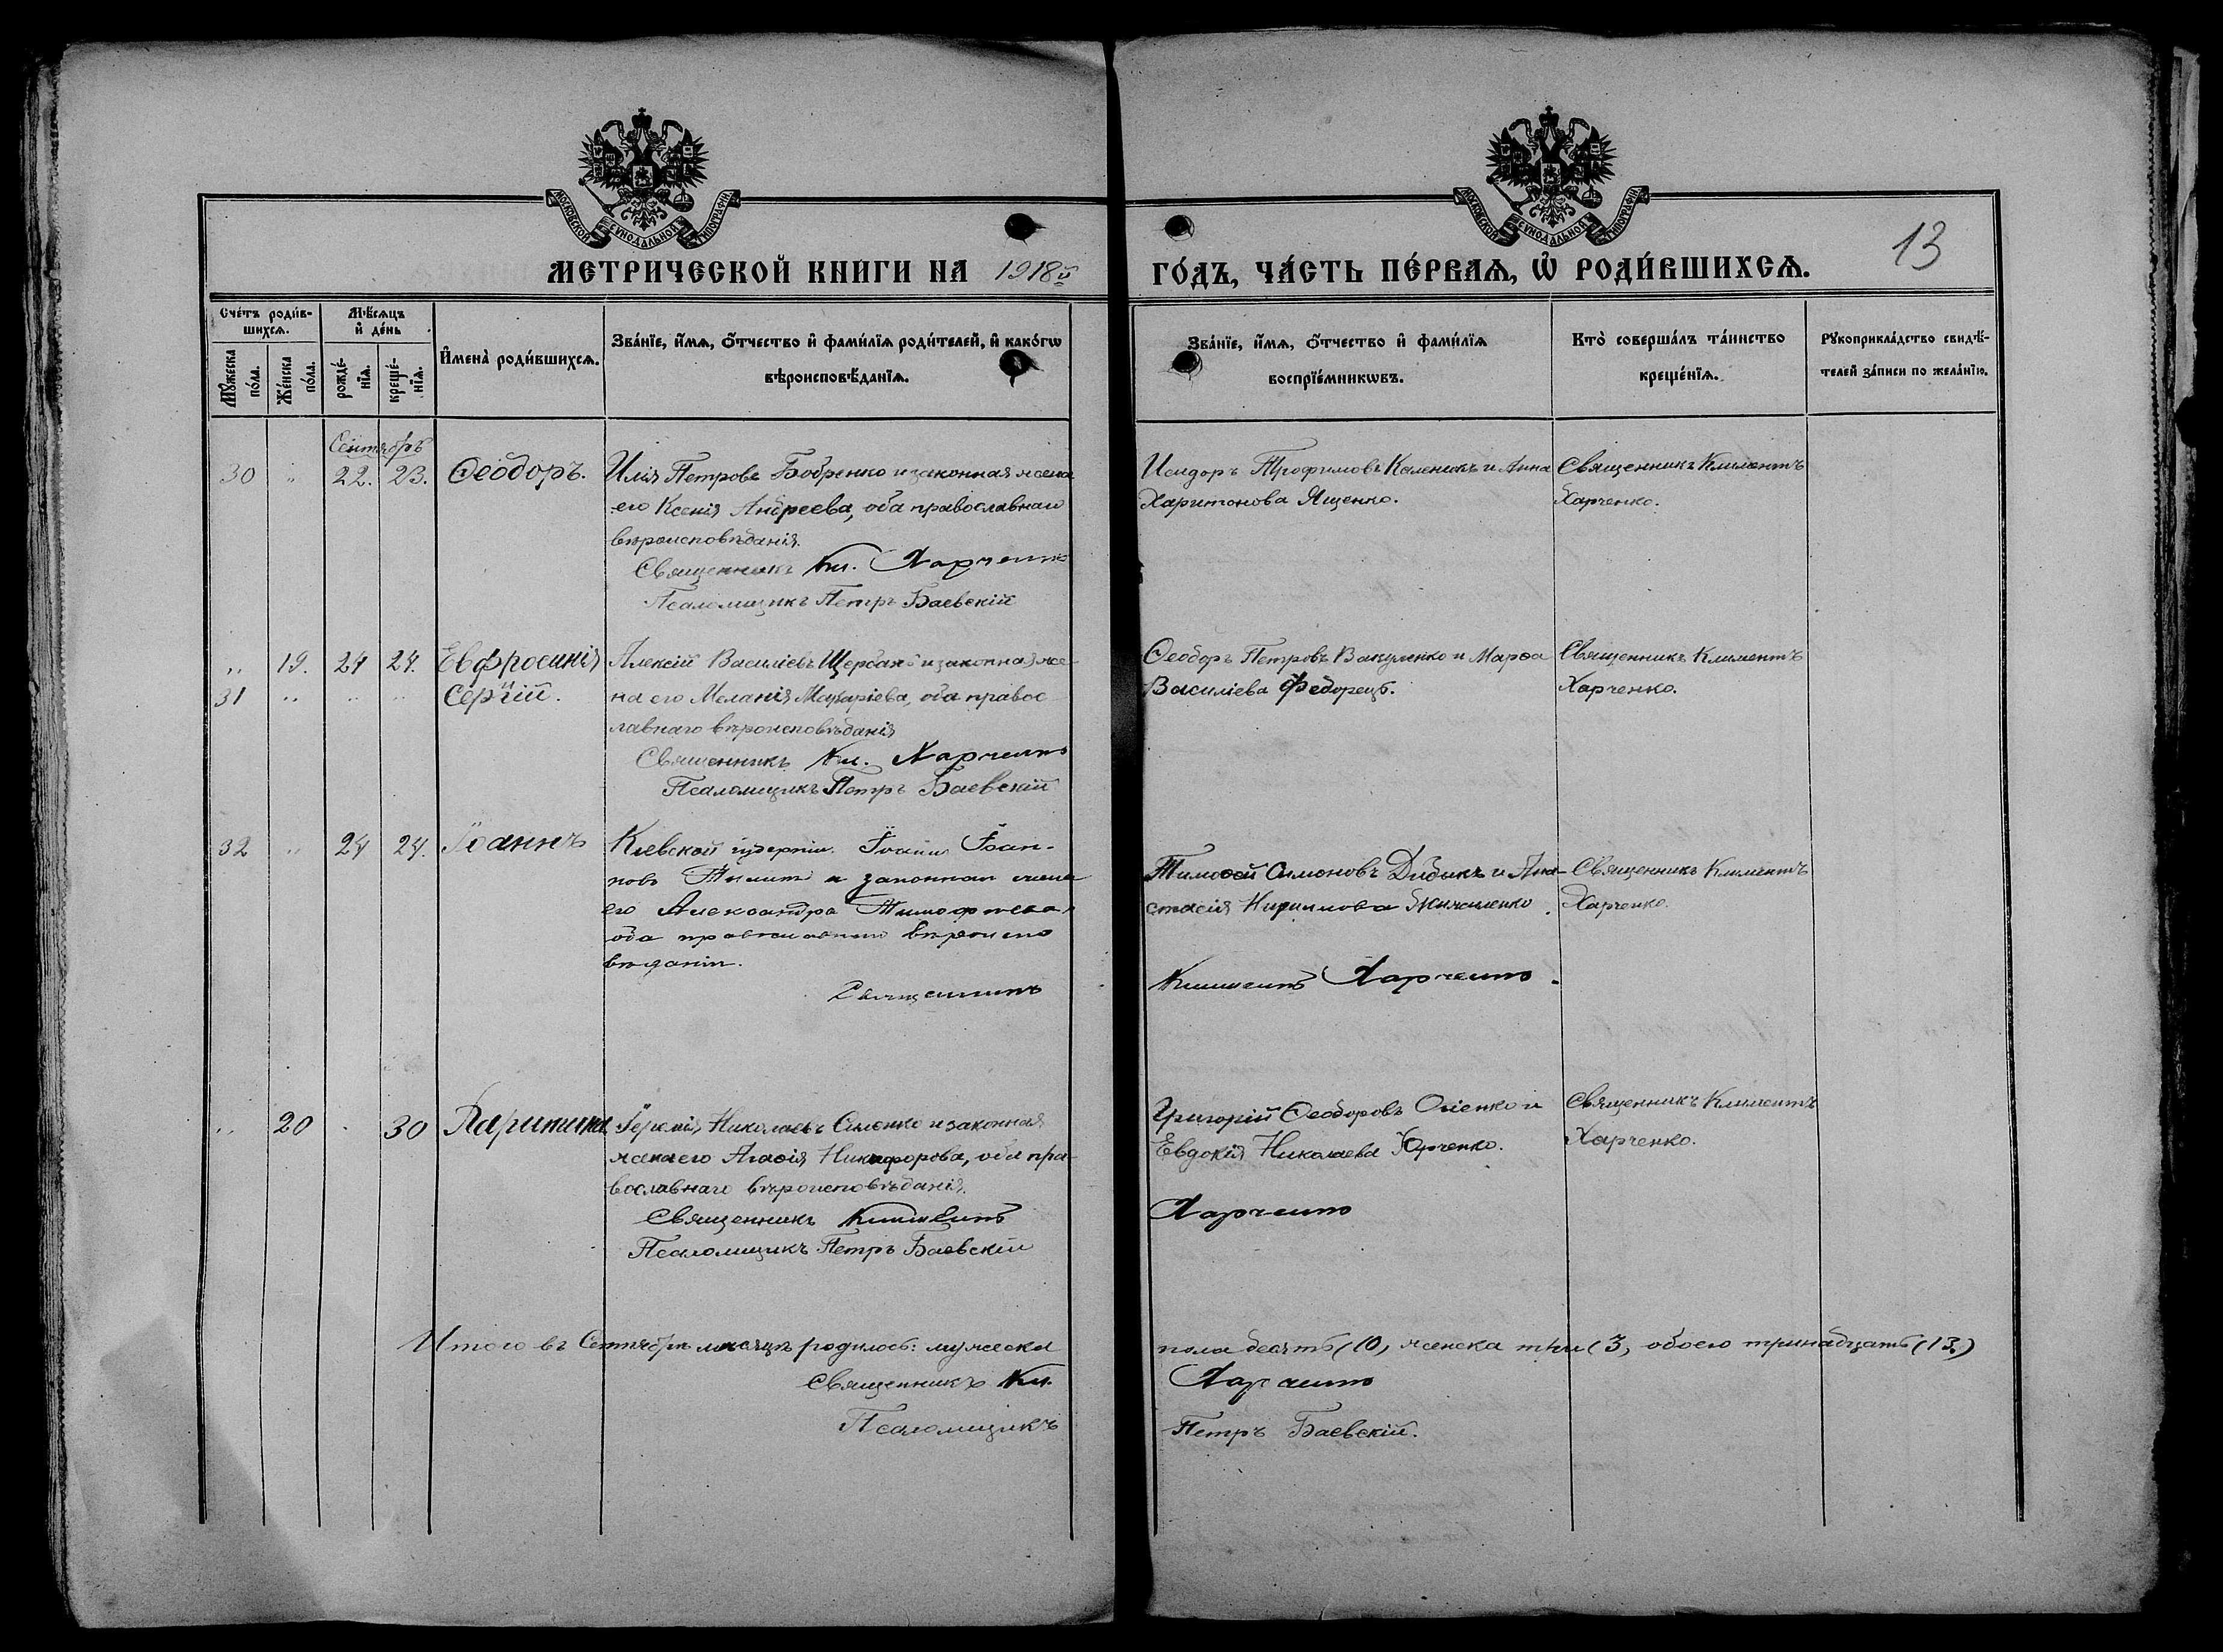 МОСКОВСКОЙ СѴНОДАЛЬНОЙ ТИПОГРАФІИ
МОСКОВСКОЙ СѴНОДАЛЬНОЙ ТИПОГРАФІИ
МЕТРИЧЕСКОЙ КНИГИ НА 1918й ГО́ДЪ, ЧА́СТЬ ПЕ́РВАѦ, Ѽ РОДИ́ВШИХСѦ. 13
Сче́тъ роди́в-
шихсѧ.
Мꙋжеска
по́ла.
Же́нска
по́ла.
Мѣ́сѧцъ
и҆ де́нь
рожде́-
нїѧ.
креще́-
нїѧ.
И҆мена̀ роди́вшихсѧ.
Зва́нїе, и҆́мѧ, ѻ҆́тчество и҆ фами́лїѧ роди́телей, и҆ како́гѡ
вѣроисповѣ́данїѧ.
Зва́нїе, и҆́мѧ, ѻ҆́тчество и҆ фами́лїѧ
воспрїе́мникѡвъ.
Кто̀ соверша́лъ та́инство
креще́нїѧ.
Рꙋкоприкла́дство свидѣ́-
телей за́писи по жела́нїю.
Сентябрь
30 " 22. 23. Ѳеодоръ. Илія Петровъ Бобренко и законная жена
его Ксенія Андреева, оба православнаго
вѣроисповѣданія.
Священникъ Кл. Харченко
Псаломщикъ Петръ Баевскій
Исидоръ Трофимовъ Каленикъ и Анна
Харитонова Ященко.
Священникъ Климентъ
Харченко.
" 19. 24 24. Евфросинія Алексій Василіевъ Щербакъ и законная же-
31 " " " Сергій. на его Меланія Макаріева, оба правос-
лавнаго вѣроисповѣданія
Священникъ Кл. Харченко
Псаломщикъ Петръ Баевскій
Ѳеодоръ Петровъ Вакуленко и Марѳа
Василіева Федорецъ.
Священникъ Климентъ
Харченко.
32 " 24 24. Іоаннъ Кіевской губерніи Іоан-
новъ и законная жена
его Александра Тимофеева,
оба православнаго вѣроиспо
вѣданія.
Священникъ Климентъ Харченко.
Тимоѳей Симоновъ Дидыкъ и Ана-
стасія
Священникъ Климентъ
Харченко.
" 20 30 Іеремія Николаевъ и законная
жена его Агаѳія Никифорова, оба пра-
вославнаго вѣроисповѣданія.
Священникъ Климентъ Харченко
Псаломщикъ Петръ Баевскій
Григорій Ѳеодоровъ и
Евдокія Николаева
Священникъ Климентъ
Харченко.
Итого въ Сентябрѣ мѣсяцѣ родилось: мужеска пола десять (10, женска три (3, обоего тринадцать (13.)
Священникъ Кл. Харченко
Псаломщикъ Петръ Баевскій.